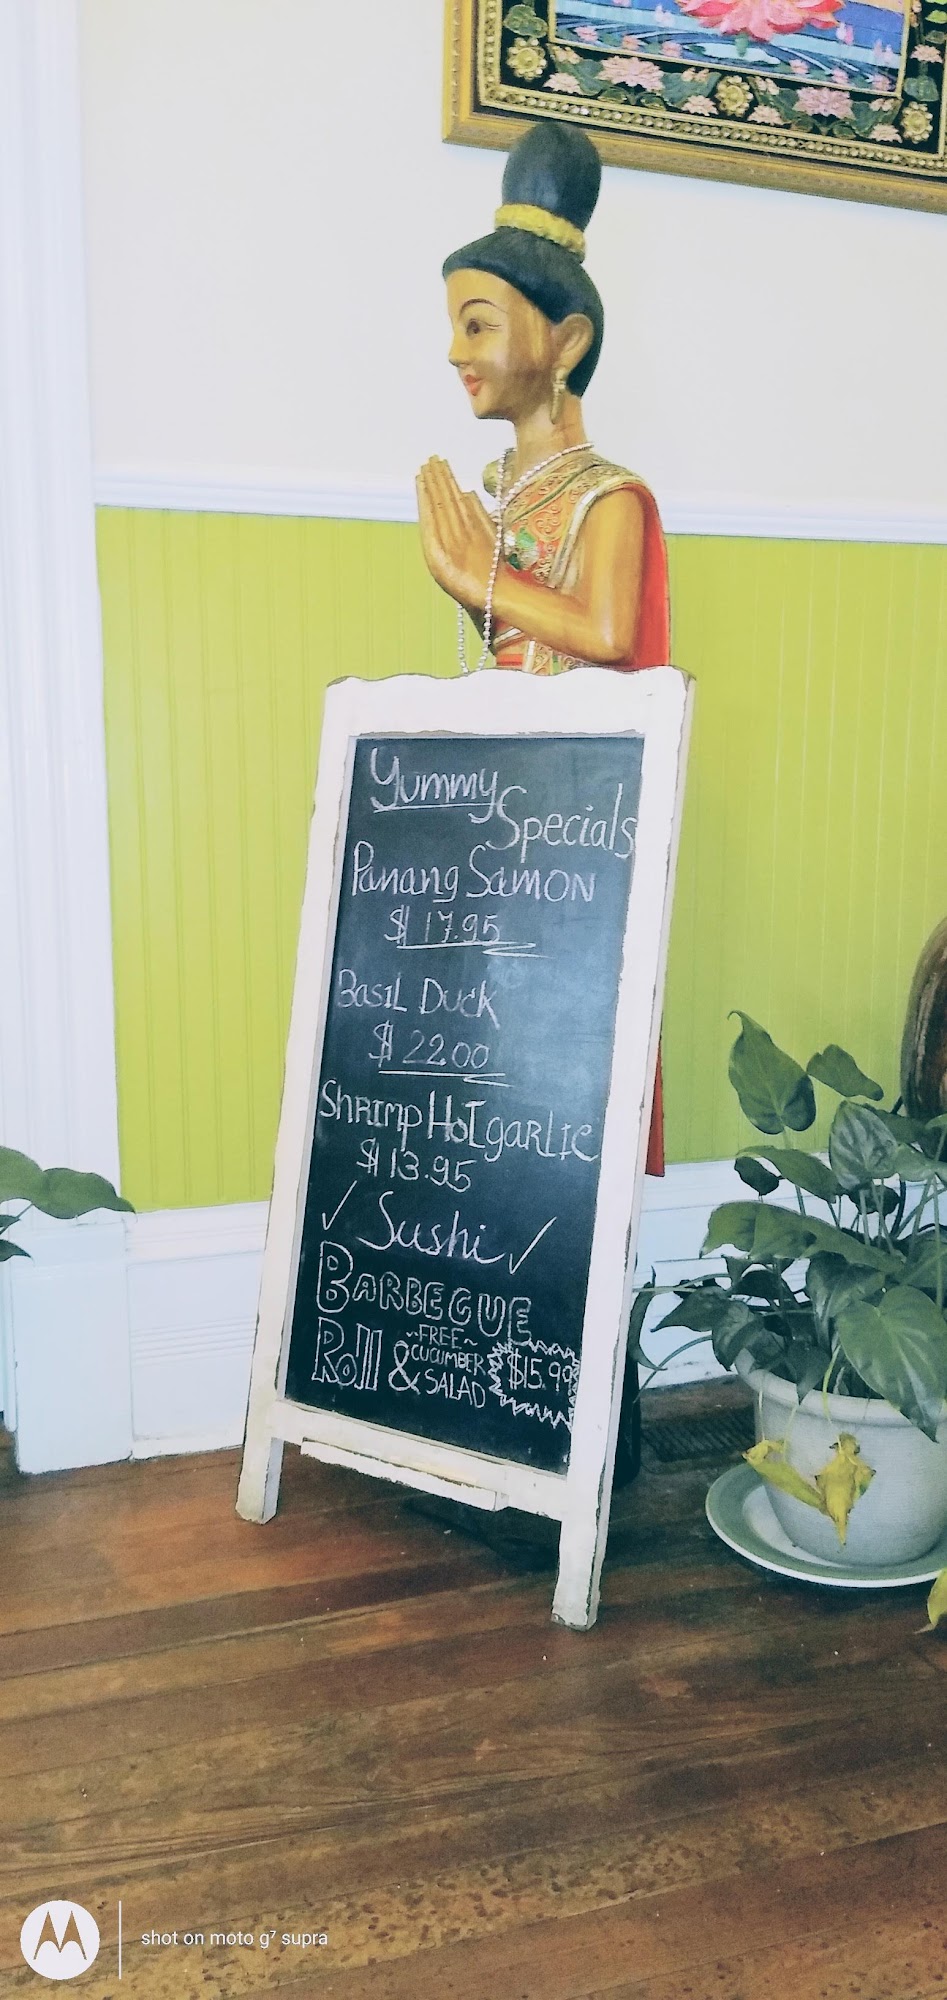 Yummy
Specials
Panang Samon
$17.95
Basil Duck
$22.00
Shrimp Hot garlic
$13.95
✓ Sushi ✓
BARBEQUE
Roll & ~FREE~
CUCUMBER
SALAD
$15.99
shot on moto g⁷ supra